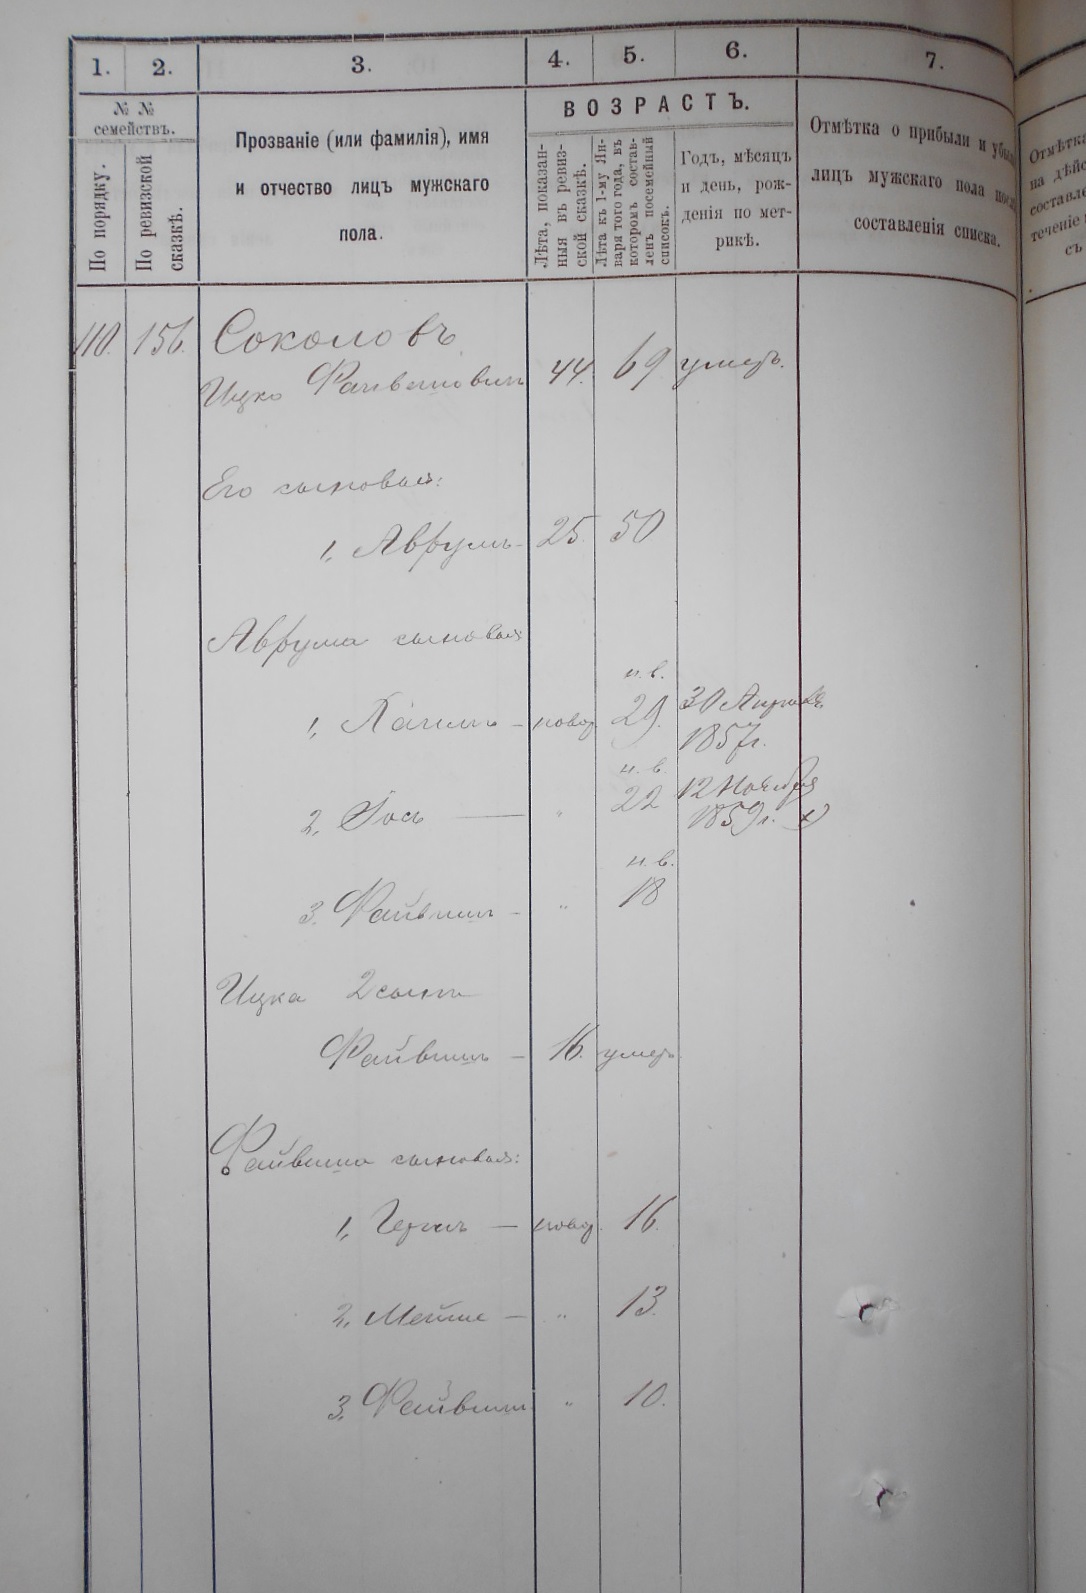 1. 2. 3. 4. 5. 6. 7.
№ №
семействъ.
По порядку.
По ревизской
сказкѣ.
Прозваніе (или фамилія), имя
и отчество лицъ мужскаго
пола.
ВОЗРАСТЪ.
Лѣта, показан-
ныя въ ревиз-
ской сказкѣ.
Лѣта къ 1-му Ян-
варя того года, въ
которомъ состав-
ленъ посемейный
списокъ.
Годъ, мѣсяцъ
и день, рож-
денія по мет-
рикѣ.
Отмѣтка о прибыли и
лицъ мужскаго пола
составленія списка.
Отмѣтка
на
теченіе
съ
110. 156. Соколовъ
Ицко Файвишовичъ 44. 69 умеръ.
Его сыновья:
1, Аврумъ - 25. 50
Аврума сыновья
н. в.
1, - новор 29. 30 Апрѣля
1857 г.
н. в.
2, Іось — " 22 12 Ноября
1859 г. х)
н. в.
3. Файвишъ - " 18
Ицка 2 сынъ
Файвишъ - 16. умеръ
Файвиша сыновья:
1, - новор. 16.
2, - " 13.
3, Файвишъ " 10.